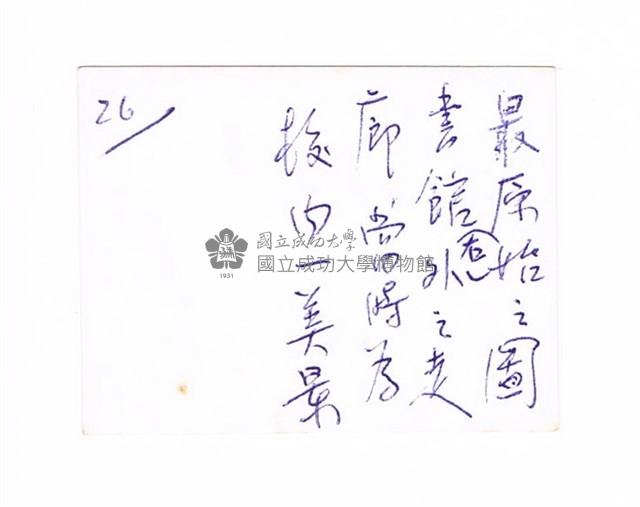 最原始之圖
書館窓外之走
廊當時為
校內一美景
26
國立成功大學
國立成功大學博物館
1931